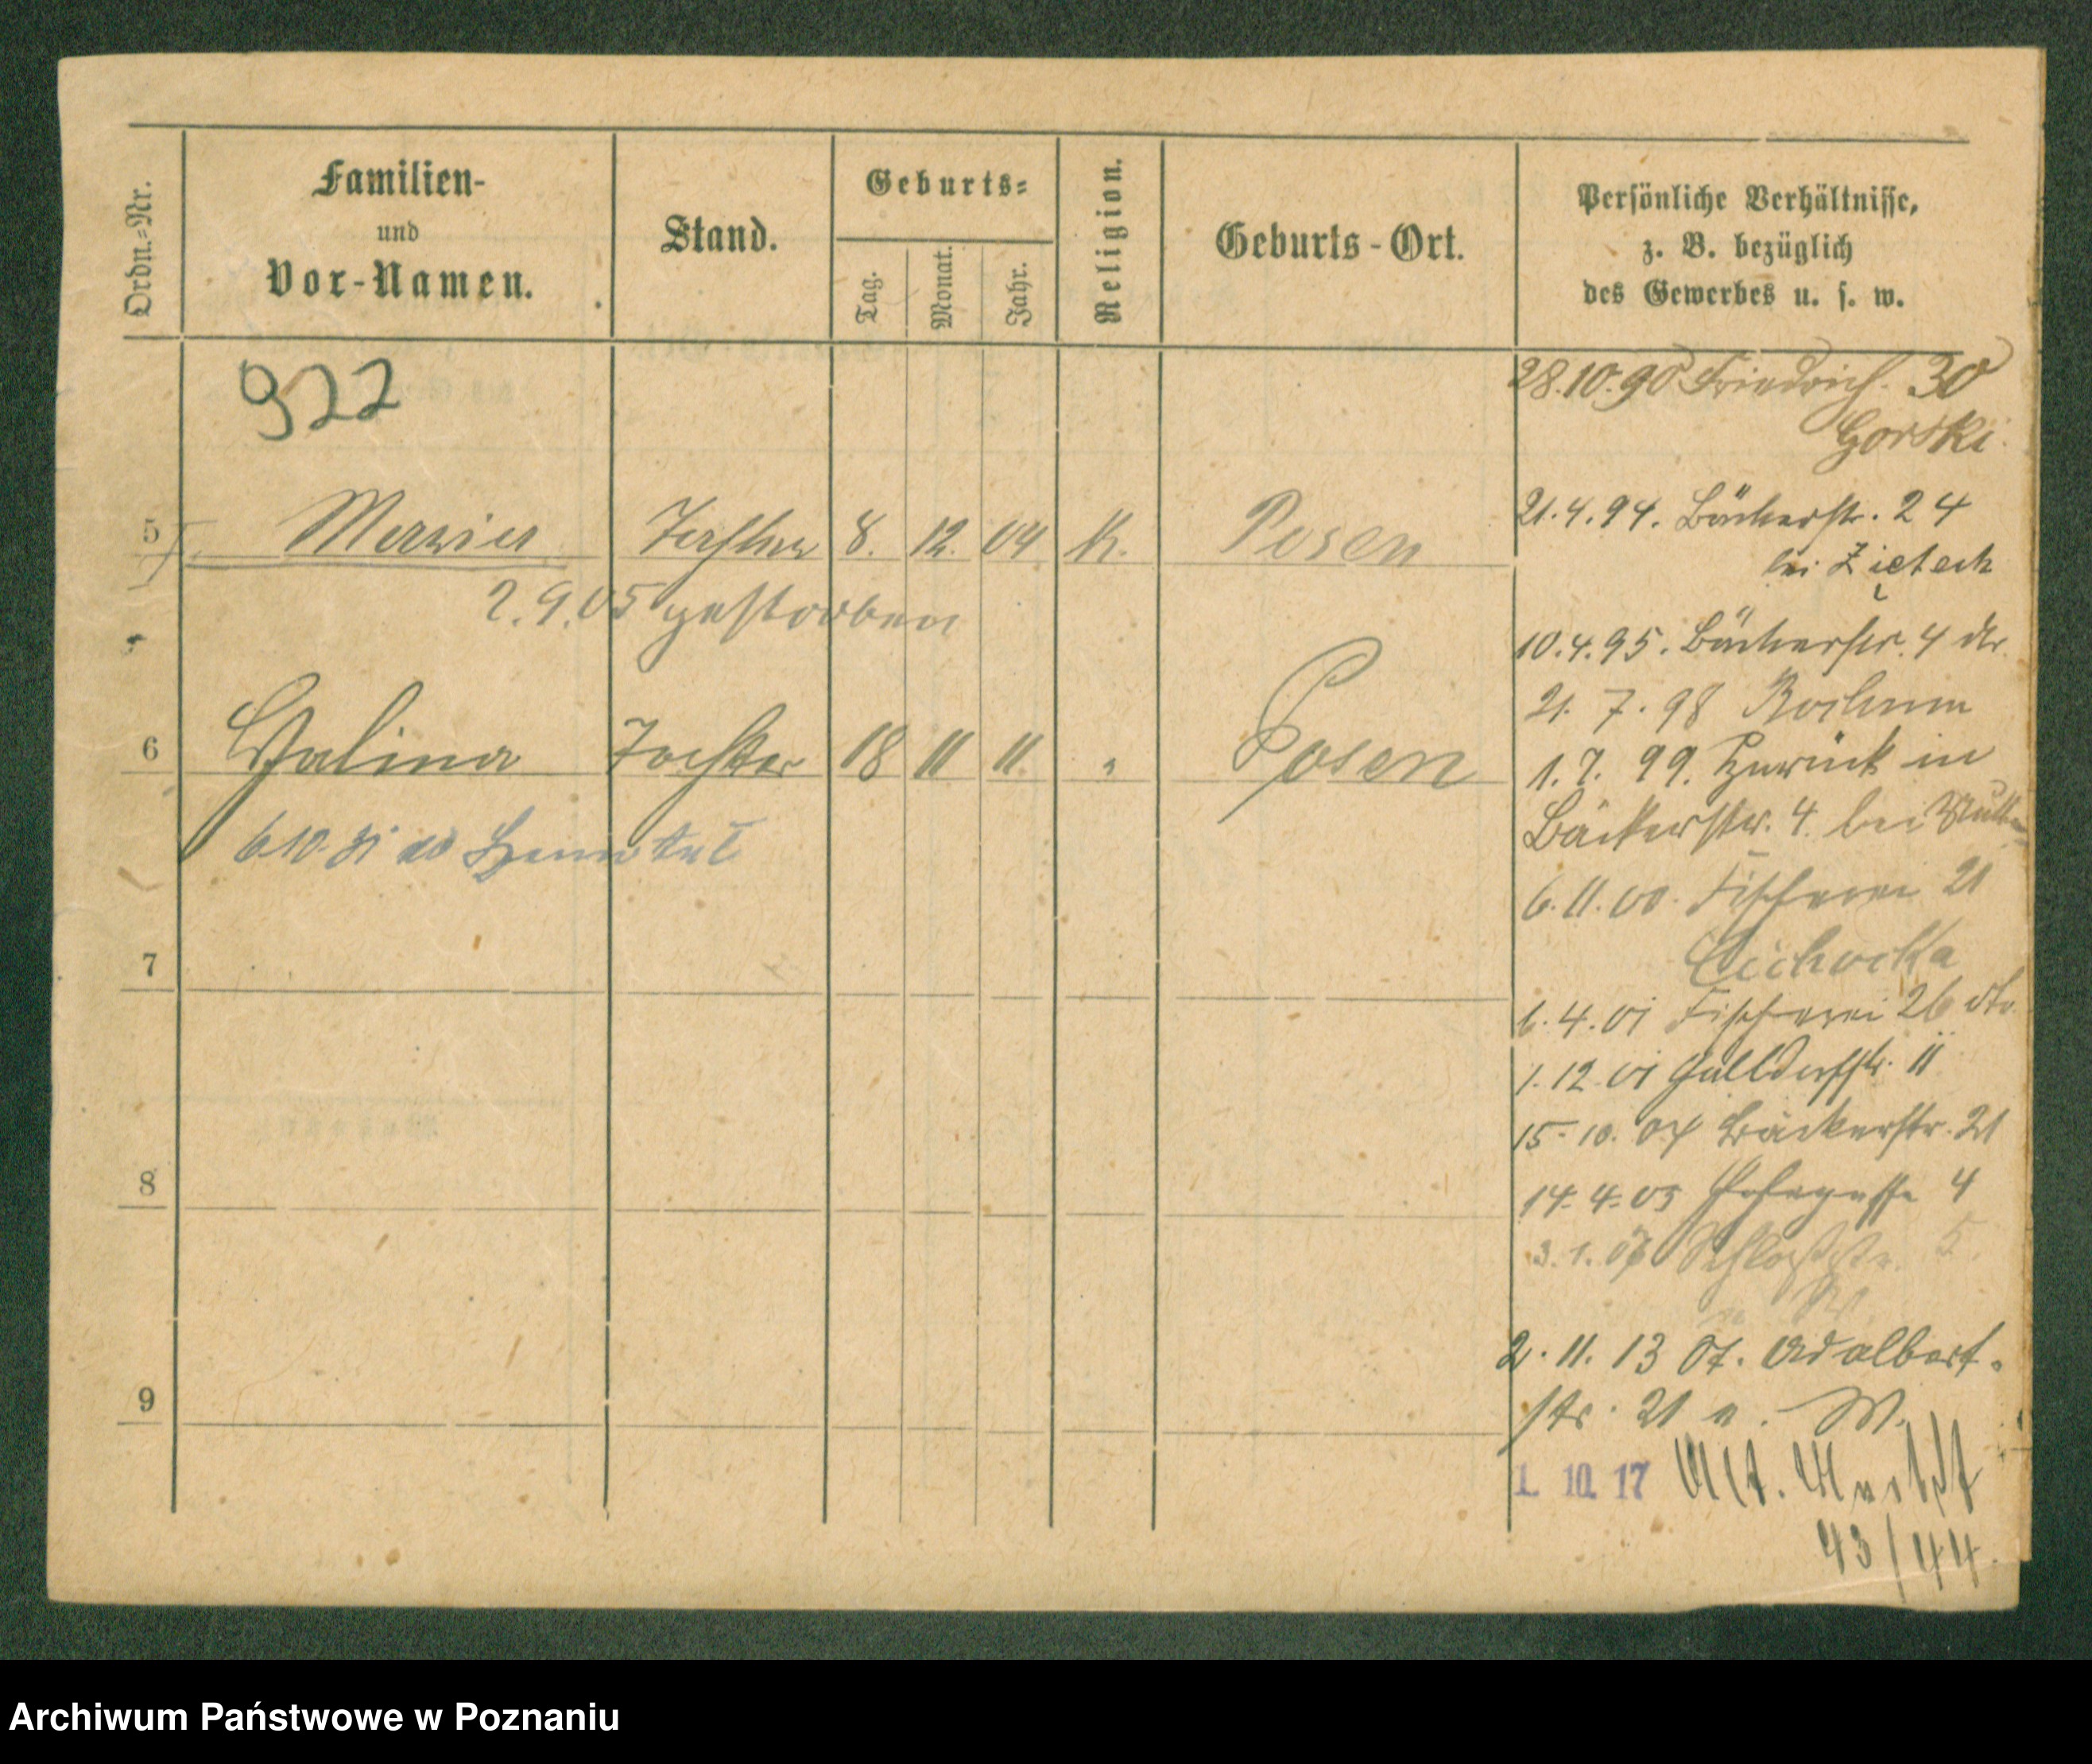 Ordn.=Nr.
Familien-
und
Vor-Namen.
Stand.
Geburts=
Tag.
Monat.
Jahr.
Religion.
Geburts-Ort.
Persönliche Verhältnisse,
z. B. bezüglich
des Gewerbes u. s. w.
922
28.10.90 Friedrich. 30
Gorski.
5 Tochter 8. 12. 04 K. Posen
2.9.05 gestorben
21.4.94. Bäckerstr. 24
bei Zietech
10.4.95. Bäckerstr. 4
21. 7. 98 Bochum
6 Halina Tochter 18 11 11 " Posen
1.7. 99. Zurück in
Bäckerstr. 4. bei
6.10.31
6.11.00. Fischerei 21
Cichocka
7
1.4.01 Fischerei 26 dto
1.12.01 Halldorfstr. 11
15.10.04 Bäckerstr. 21
8
14.4.05 4
3.1.06 Schloßstr. 5.
2.11.13 St. Adalbert-
9
str. 21 a. W.
1. 10. 17 Alt. Markt
43/44.
Archiwum Państwowe w Poznaniu